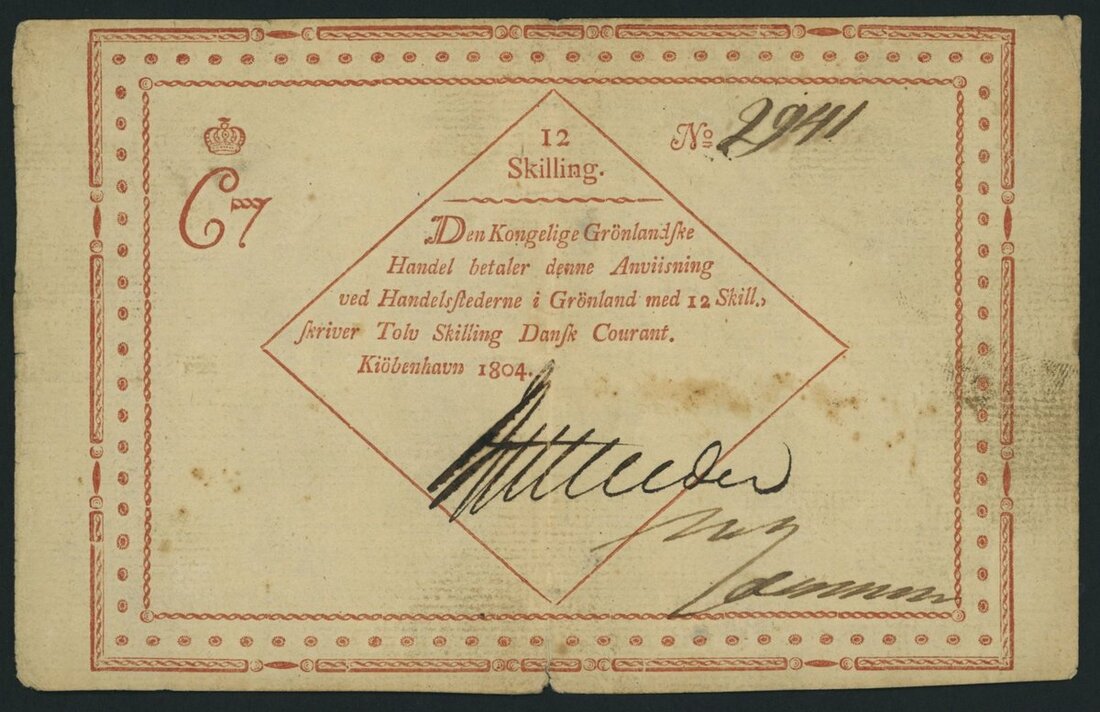 12
Skilling.
No 2941
C7
Den Kongelige Grönlandſke
Handel betaler denne Anviisning
ved Handelsſtederne i Grönland med 12 Skill.,
ſkriver Tolv Skilling Danſk Courant.
Kiöbenhavn 1804.